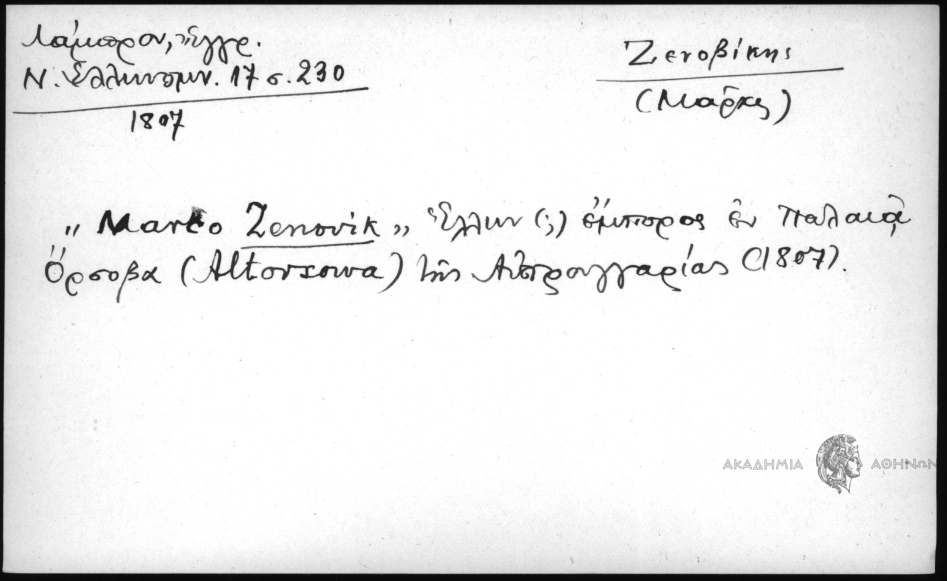 Λάμπρου, Ἔγγρ.
Ν. Ἑλληνομν. 17 σ. 230
1807
Ζενοβίκης
(Μᾶρκς)
„ Marco Zenovik „ Ἕλλην (;) ἔμπορος ἐν Παλαιᾷ
Ὄρσοβα (Altorsowa) τῆς Αὐστρουγγαρίας (1807).
ΑΚΑΔΗΜΙΑ ΑΘΗΝΩΝ